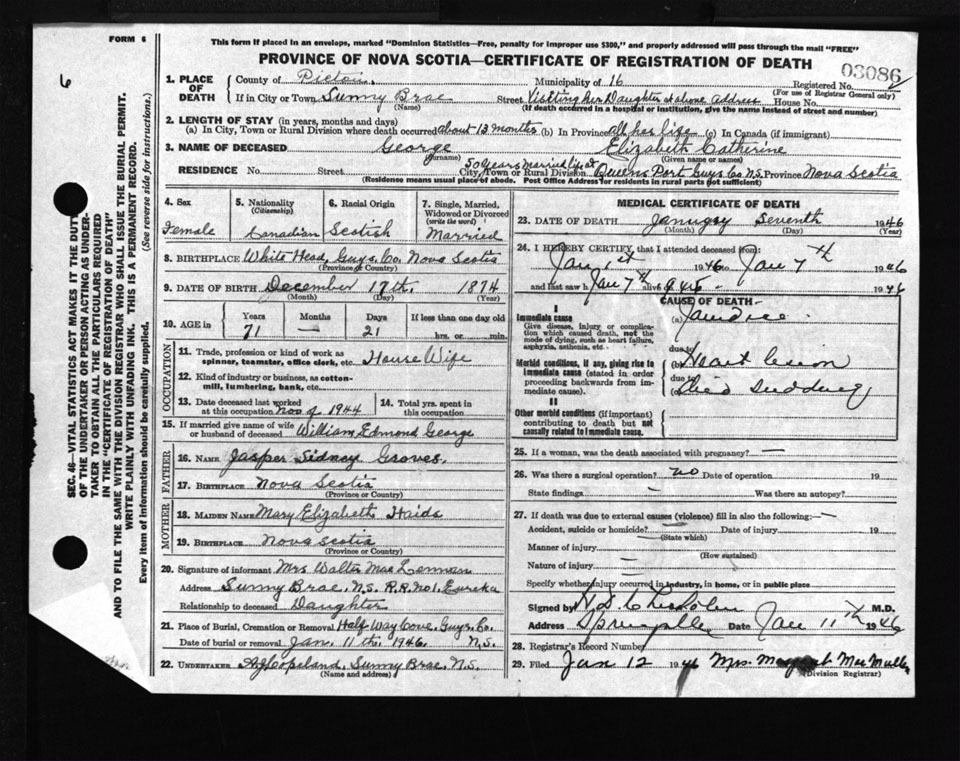 FORM 6
This form if placed in an envelope, marked "Dominion Statistics—Free, penalty for improper use $300," and properly addressed will pass through the mail "FREE"
PROVINCE OF NOVA SCOTIA—CERTIFICATE OF REGISTRATION OF DEATH
03086
6
SEC. 46—VITAL STATISTICS ACT MAKES IT THE DUTY
OF THE UNDERTAKER OR PERSON ACTING AS UNDER-
TAKER TO OBTAIN ALL THE PARTICULARS REQUIRED
IN THE "CERTIFICATE OF REGISTRATION OF DEATH"
AND TO FILE THE SAME WITH THE DIVISION REGISTRAR WHO SHALL ISSUE THE BURIAL PERMIT.
WRITE PLAINLY WITH UNFADING INK. THIS IS A PERMANENT RECORD.
Every item of information should be carefully supplied. (See reverse side for instructions.)
1. PLACE OF DEATH
County of Pictou. Municipality of 16 Registered No.
(For use of Registrar General only)
If in City or Town Sunny Brae Street Visiting her Daughter at above address House No.
(Name) (If death occurred in a hospital or institution, give the name instead of street and number)
2. LENGTH OF STAY (in years, months and days)
(a) In City, Town or Rural Division where death occurred about 13 months (b) In Province all her life (c) In Canada (if immigrant)
3. NAME OF DECEASED George Elizabeth Catherine
(Surname) (Given name or names)
RESIDENCE No. Street City, Town or Rural Division 50 years married life at Queens Port Guys Co N.S. Province Nova Scotia
(Residence means usual place of abode. Post Office Address for residents in rural parts not sufficient)
4. Sex
Female
5. Nationality
(Citizenship)
Canadian
6. Racial Origin
Scotish
7. Single, Married, Widowed or Divorced
(write the word)
Married
8. BIRTHPLACE White Head, Guys. Co. Nova Scotia
(Province or Country)
9. DATE OF BIRTH December 17th. 1874
(Month) (Day) (Year)
10. AGE in Years Months Days If less than one day old
71 — 21 hrs. or min.
OCCUPATION
11. Trade, profession or kind of work as
spinner, teamster, office clerk, etc. House Wife
12. Kind of industry or business, as cotton-
mill, lumbering, bank, etc.
13. Date deceased last worked
at this occupation Nov of 1944
14. Total yrs. spent in
this occupation
15. If married give name of wife
or husband of deceased William Edmond George
FATHER
16. NAME Jasper Sidney Groves.
17. BIRTHPLACE Nova Scotia
(Province or Country)
MOTHER
18. MAIDEN NAME Mary Elizabeth Haids
19. BIRTHPLACE Nova Scotia
(Province or Country)
20. Signature of informant Mrs Walter MacLennan
Address Sunny Brae, N.S. R.R. No1, Eureka
Relationship to deceased Daughter
21. Place of Burial, Cremation or Removal Half Way Cove. Guys. Co.
Date of burial or removal Jan. 11th. 1946. N.S.
22. UNDERTAKER Copeland, Sunny Brae, N.S.
(Name and address)
MEDICAL CERTIFICATE OF DEATH
23. DATE OF DEATH January Seventh 1946
(Month) (Day) (Year)
24. I HEREBY CERTIFY, that I attended deceased from:
Jan 1st 1946 to Jan 7th 1946
and last saw h alive on Jan 7th 1946
CAUSE OF DEATH
I
Immediate cause
Give disease, injury or complica-
tion which caused death, not the
mode of dying, such as heart failure,
asphyxia, asthenia, etc.
(a) Jaundice.
due to
Morbid conditions, if any, giving rise to
immediate cause (stated in order
proceeding backwards from im-
mediate cause).
(b) Heart lesion
due to
II
Other morbid conditions (if important)
contributing to death but not
causally related to immediate cause.
25. If a woman, was the death associated with pregnancy? —
26. Was there a surgical operation? no Date of operation 19
State findings — Was there an autopsy?
27. If death was due to external causes (violence) fill in also the following: —
Accident, suicide or homicide? Date of injury 19
(State which)
Manner of injury
(How sustained)
Nature of injury —
Specify whether injury occurred in industry, in home, or in public place
Signed by M.D.
Address Springville Date Jan 11th 1946
28. Registrar's Record Number
29. Filed Jan 12 1946 Mrs. Margaret
(Division Registrar)